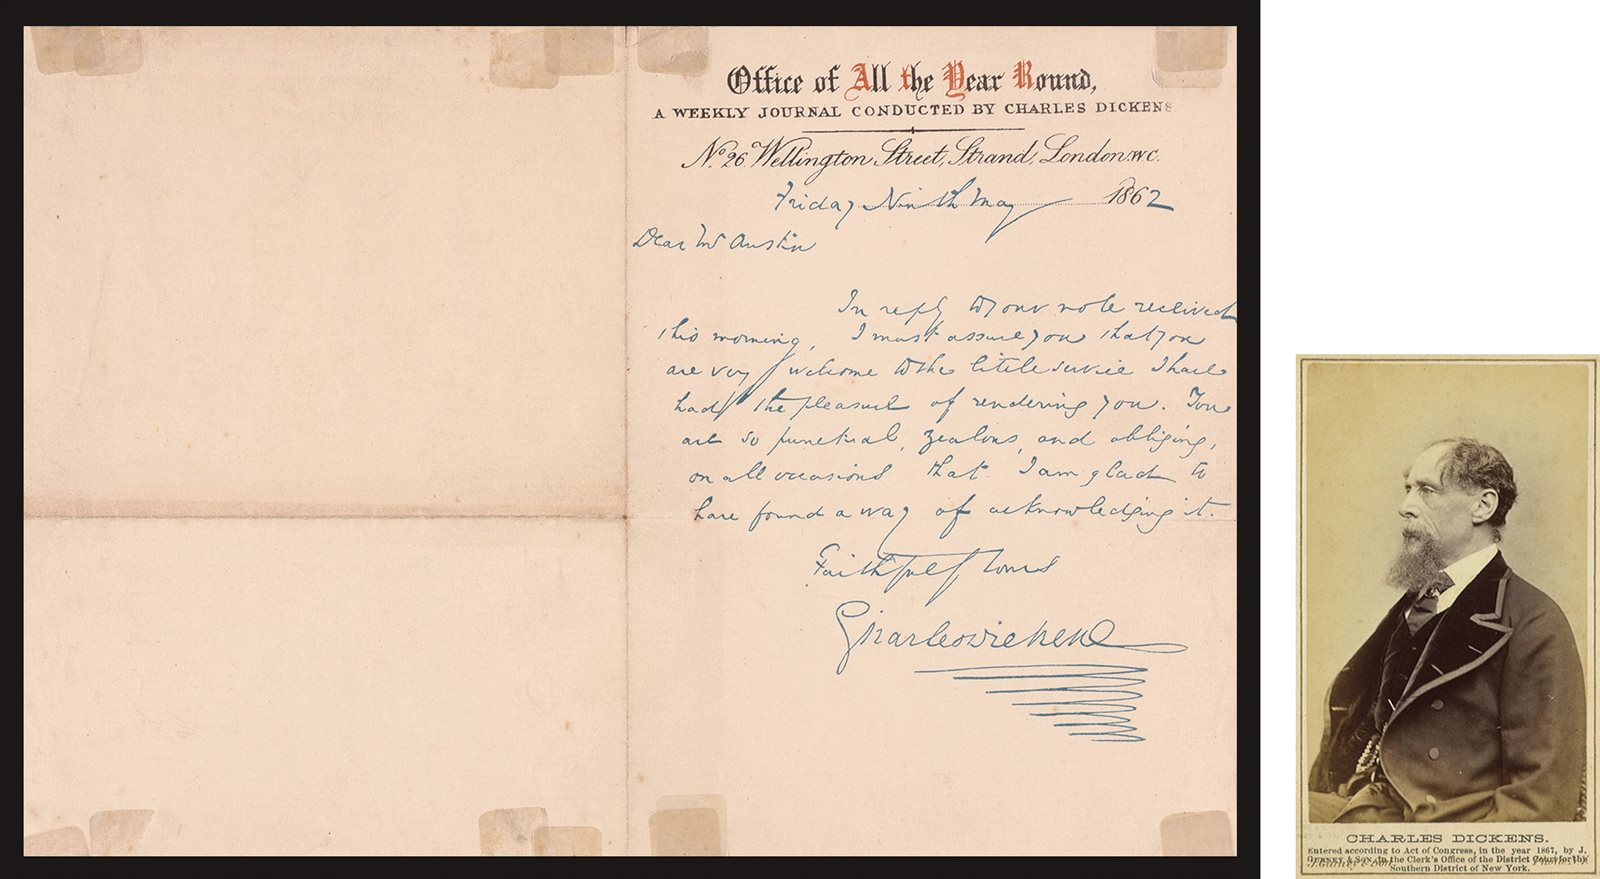 Office of All the Year Round,
A WEEKLY JOURNAL CONDUCTED BY CHARLES DICKENS
No. 26 Wellington Street, Strand, London. W.C.
Friday Ninth May 1862
Dear Mr Austin
In reply to your note received
this morning, I must assure you that you
are very welcome to the little service I have
had the pleasure of rendering you. You
are so punctual, zealous, and obliging,
on all occasions that I am glad to
have found a way of acknowledging it.
Faithfully Yours
Charles Dickens
CHARLES DICKENS.
Entered according to Act of Congress, in the year 1867, by J.
GURNEY & SON, in the Clerk's Office of the District Court for the
Southern District of New York.